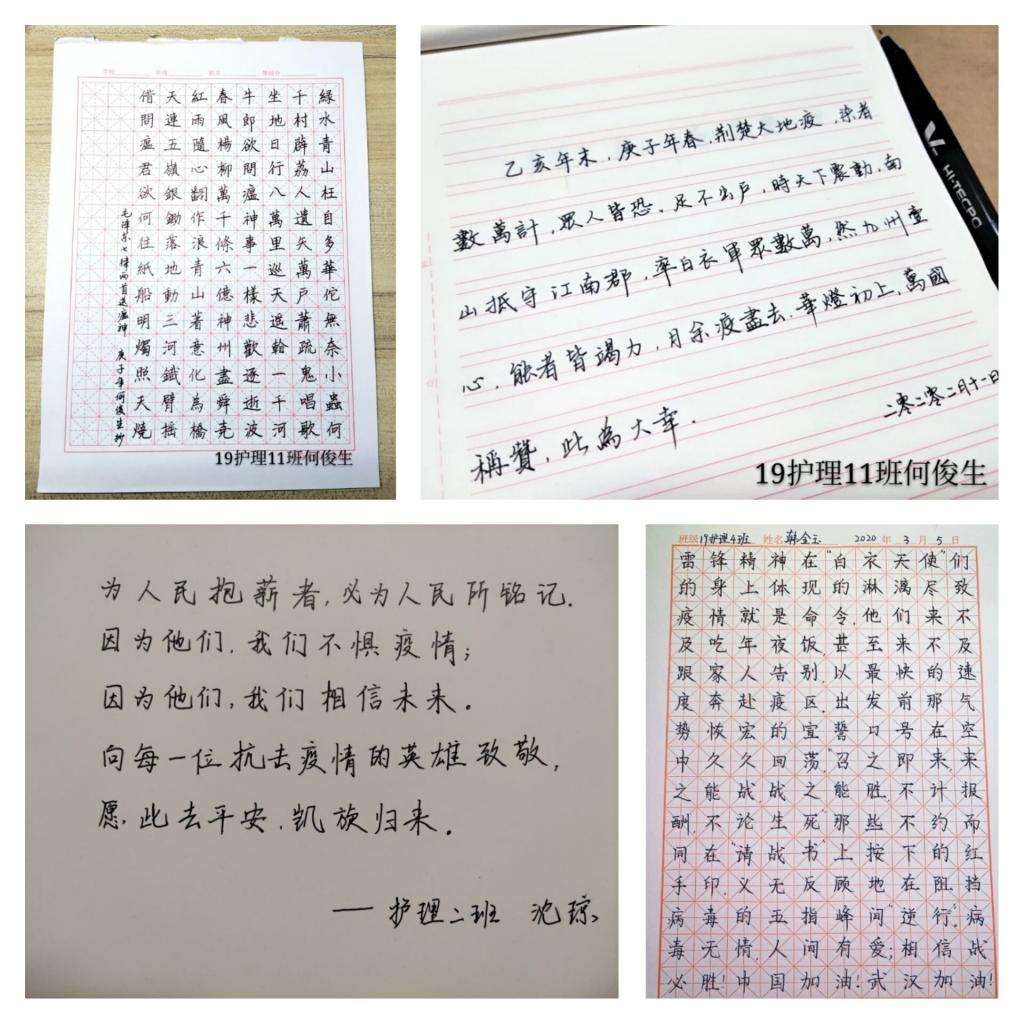 綠水青山枉自多華佗無奈小蟲何
千村薜荔人遺矢萬戶蕭疏鬼唱歌
坐地日行八萬里巡天遙看一千河
牛郎欲問瘟神事一樣悲歡逐逝波
春風楊柳萬千條六億神州盡舜堯
紅雨隨心翻作浪青山著意化為橋
天連五嶺銀鋤落地動三河鐵臂搖
借問瘟君欲何往紙船明燭照天燒
毛澤东七律两首送瘟神 庚子年何俊生抄
19护理11班何俊生
乙亥年末,庚子年春,荆楚大地疫,染者
數萬計,眾人皆恐,足不出戶,時天下震動,南
山抵守江南郡,率白衣軍眾數萬,然九州壹
心,能者皆竭力,月余疫盡去,華燈初上,萬國
稱贊,此為大幸.
二零二零二月十一日
HI-TECPO
19护理11班何俊生
为人民抱薪者,必为人民所铭记.
因为他们,我们不惧疫情;
因为他们,我们相信未来。
向每一位抗击疫情的英雄致敬,
愿,此去平安,凯旋归来。
——护理二班 沈琼
班级19护理4班 姓名韩金玉 2020年3月5日
雷锋精神在"白衣天使"们
的身上体现的淋漓尽致
疫情就是命令,他们来不
及吃年夜饭,甚至来不及
跟家人告别,以最快的速
度奔赴疫区,出发前那气
势恢宏的宣誓口号在空
中久久回荡,"召之即来,来
之能战,战之能胜,不计报
酬,不论生死那些不约而
同在"请战书"上按下的红
手印,义无反顾地在阻挡
病毒的五指峰间"逆行",病
毒无情,人间有爱;相信战
必胜!中国加油!武汉加油!